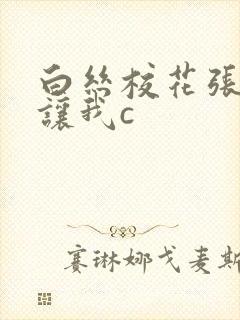 白丝校花張
讓我c
赛琳娜戈麦斯